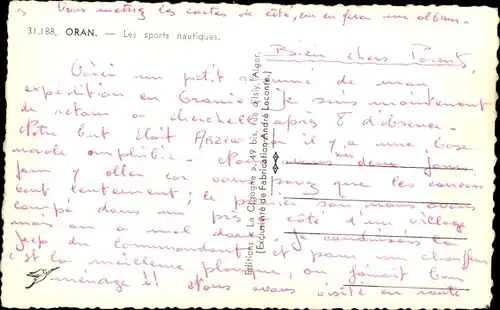 Vous mettrez les cartes de côté, on en fera un album.
31.188. ORAN. — Les sports nautiques.
Bien chers Parents,
Voici un petit résumé de mon
expédition en Oranie. Je suis maintenant
de retour à Cherchell après 8 d'absence.
Notre but était ARZEW où il y a une base
navale amphibie. Nous mis deux jours
pour y aller car vous savez que les canons
vont lentement; le premier soir nous avons
campé dans un pré à côté d'un village
mais on a mal dormi. Je conduisais la
jeep du commandant et pour un chauffeur
c'est la meilleure planque, on faisait bon
ménage !! Nous avons visité en route
Editions « La Cigogne », 49 bis, rue d'Isly, Alger.
(Exclusivité de Fabrication André Leconte.)